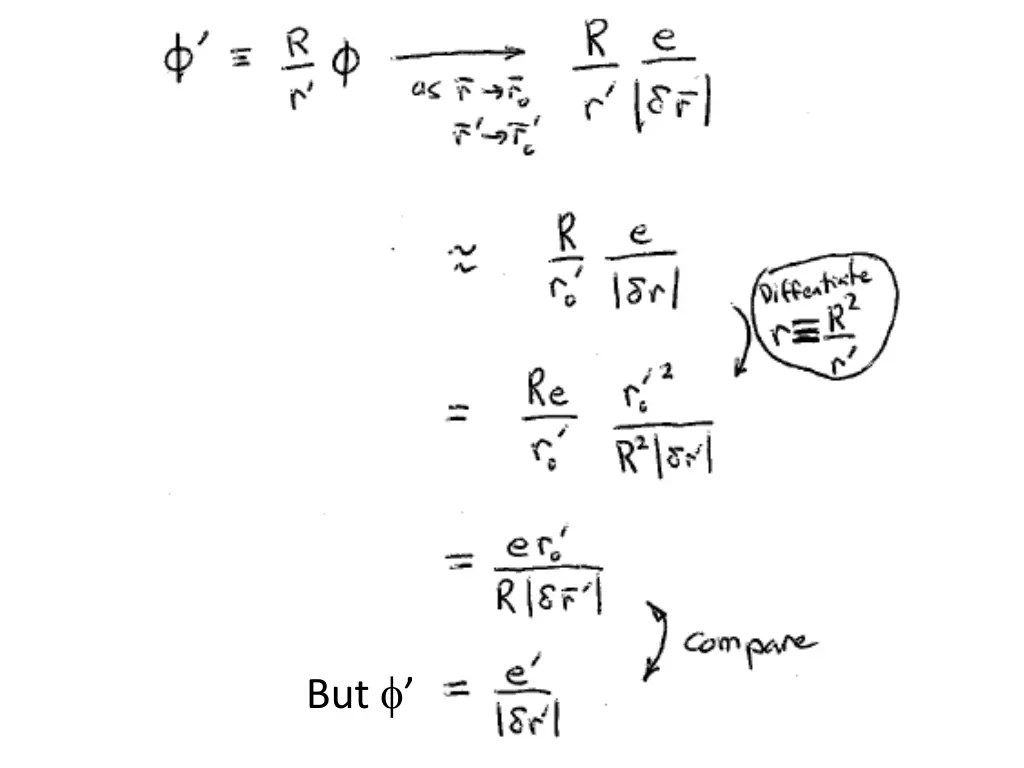 ϕ′ ≡ R/r′ ϕ ⟶ as r̄→r̄₀ r̄′→r̄₀′ R/r′ e/|δr̄|
≈ R/r₀′ e/|δr|
Diffentiate
r≡R²/r′
= Re/r₀′ r₀′²/R²|δr′|
= er₀′/R|δr̄′|
compare
But ϕ’ = e′/|δr′|